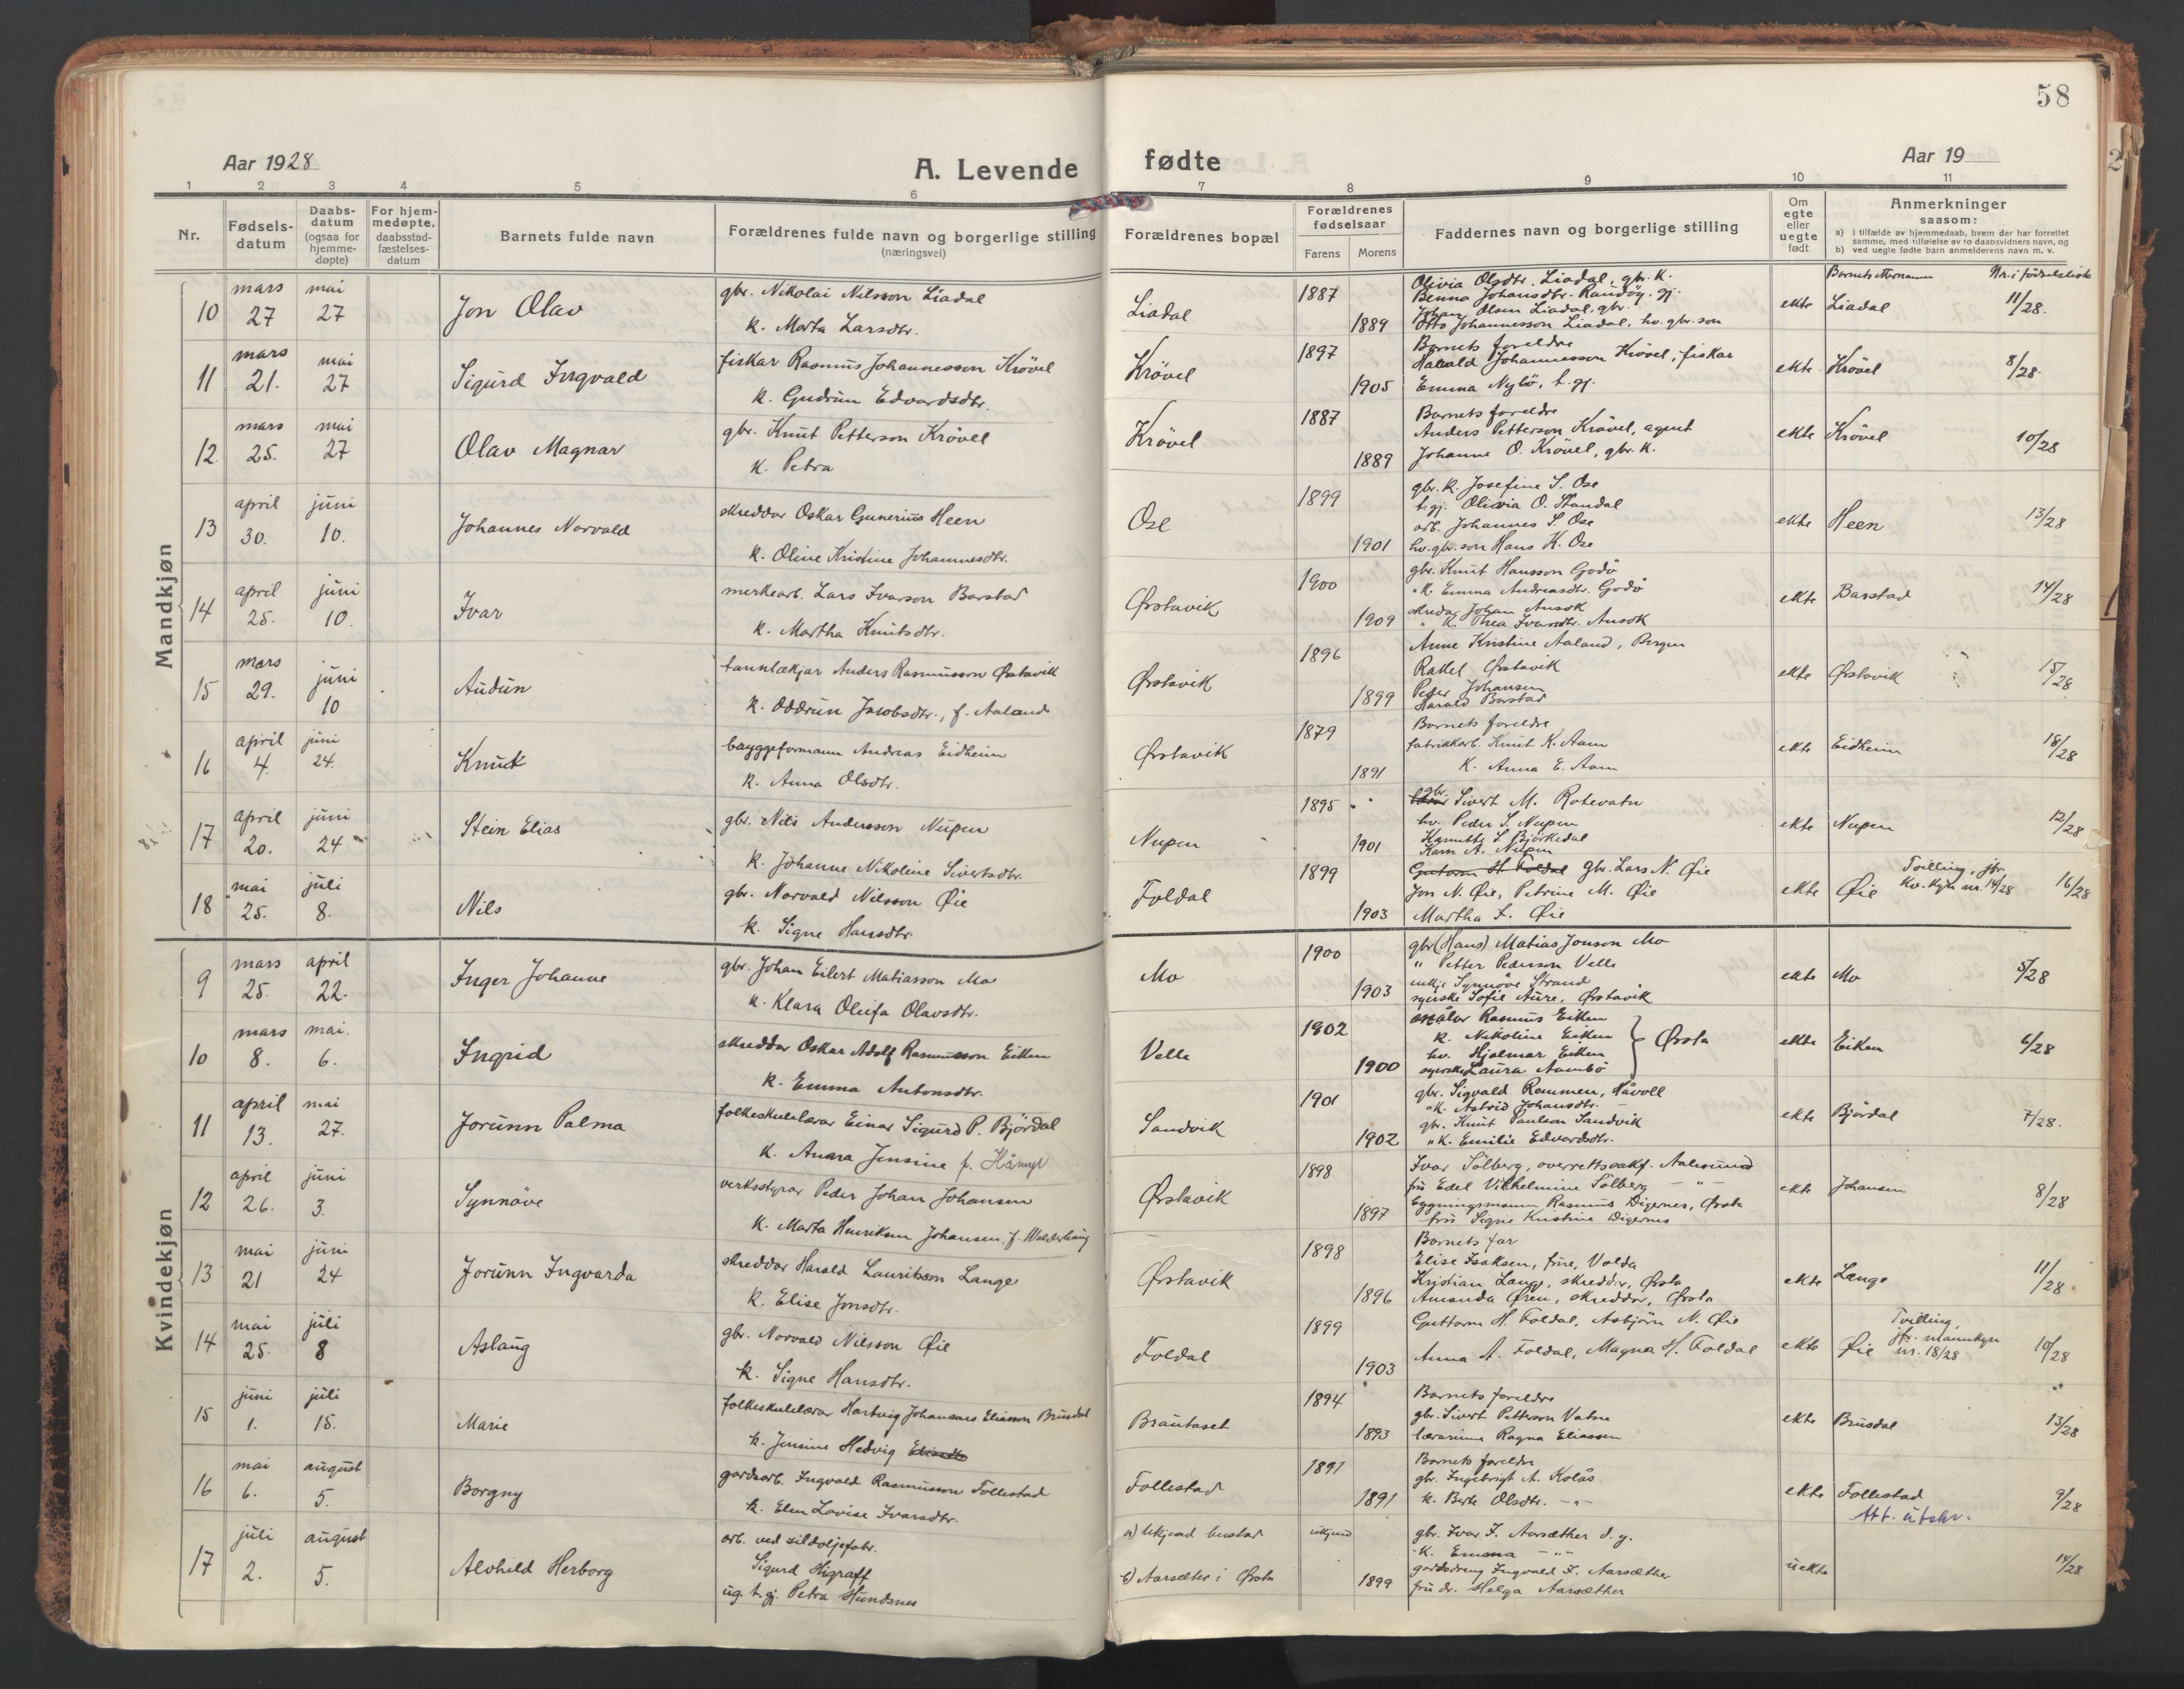 58
Aar 1928
A. Levende fødte
Aar 19
1 2 3 4 5 6 7 8 9 10 11
Nr.
Fødselsdatum
Daabsdatum (ogsaa for hjemmedøpte)
For hjemmedøpte, daabsstadfæstelsesdatum
Barnets fulde navn
Forældrenes fulde navn og borgerlige stilling (næringsvei)
Forældrenes bopæl
Forældrenes fødselsaar
Farens Morens
Faddernes navn og borgerlige stilling
Om egte eller uegte født
Anmerkninger saasom:
a) i tilfælde av hjemmedaab, hvem der har forrettet samme, med tilføielse av to daabsvidners navn, og
b) ved uegte fødte barn anmelderens navn m. v.
Barnets etternamn Nr. i fødselsliste
Mandkjøn
10 mars 27 mai 27 Jon Olav
gbr. Nikolai Nilsson Liadal
k. Marta Larsdtr.
Liadal 1887 1889
Olivia Olsdtr. Liadal, gbr. k.
Benna Johansdtr. Randøy. gj.
Johan Olsen Liadal, gbr.
Otto Johannesson Liadal, hv. gbr. son
ekte Liadal 11/28.
11 mars 21. mai 27 Sigurd Ingvald
fiskar Rasmus Johannesson Krövel
k. Gudrun Edvardsdtr.
Krövel 1897 1905
Barnets foreldre
Harald Johannesson Krövel, fiskar
Emma Nybö, t. gj.
ekte Krövel 8/28.
12 mars 25. mai 27 Olav Magnar
gbr. Knut Petterson Krövel
k. Petra
Krövel 1887 1889
Barnets foreldre
Anders Petterson Krövel, agent
Johanne O. Krövel, gbr. k.
ekte Krövel 10/28
13 april 30. juni 10. Johannes Norvald
skreddar Oskar Gunerius Heen
k. Oline Kristine Johannesdtr.
Ose 1899 1901
gbr. k. Josefine S. Ose
t.gj. Olivia O. Standal
arb. Johannes S. Ose
hv. gbr. son Hans K. Ose
ekte Heen 13/28
14 april 25. juni 10. Ivar
merkearb. Lars Ivarson Barstad
k. Martha Knutsdtr.
Ørstavik 1900 1909
gbr. Knut Hansson Godö
" k. Emma Andreasdtr. Godö
skredar Johan Ausok
" k. Thea Ivarsdtr. Ausok
ekte Barstad 14/28
15 mars 29. juni 10 Audun
tannlækjar Anders Rasmusson Ørstavik
k. Oddrun Jacobsdtr., f. Aaland
Ørstavik 1896 1899
Anne Kristine Aaland, Bergen
Rakel Ørstavik
Peder Johansen
Harald Barstad
ekte Ørstavik 15/28
16 april 4. juni 24. Knut
byggeformann Andreas Eidheim
k. Anna Olsdtr.
Ørstavik 1879 1891
Barnets foreldre
fabrikkarb. Knut K. Aam
k. Anna E. Aam
ekte Eidheim 18/28
17 april 20. juni 24 Stein Elias
gbr. Nils Andersson Nupen
k. Johanne Nikoline Sivertsdtr.
Nupen 1895 1901
gbr. Sivert M. Rotevatn
hv. Peder S. Nupen
Knutte S. Björkedal
Karn A. Nupen
ekte Nupen 12/28
18 mai 25. juli 8. Nils
gbr. Norvald Nilsson Øie
k. Signe Hansdtr.
Foldal 1899 1903
Guttorm H. Foldal gbr. Lars N. Øie
Jon N. Øie, Petrine M. Øie
Martha F. Øie
ekte Øie Tvilling, jfr. kv. kyn nr. 14/28 16/28
Kvindekjøn
9 mars 25. april 22. Inger Johanne
gbr. Johan Eilert Matiasson Mo
k. Klara Oleifa Olavsdtr.
Mo 1900 1903
gbr (Hans) Matias Jonson Mo
" Petter Pederson Velle
enkje Synnöve Strand
syerske Sofie Aure, Ørstavik
ekte Mo 5/28
10 mars 8. mai. 6. Ingrid
skreddar Oskar Adolf Rasmusson Eiken
k. Emma Antonsdtr.
Velle 1902 1900
målar Rasmus Eiken
k. Nikoline Eiken
hv. Hjalmar Eiken
syerske Laura Aambö
Ørsta
ekte Eiken 6/28
11 april 13. mai 27. Jorunn Palma
folkeskulelærar Einar Sigurd P. Björdal
k. Anna Jensine f. Håmyr
Sandvik 1901 1902
gbr. Sigvald Remmen, Håvoll
"k. Astrid Johansdtr.
gbr. Knut Paulson Sandvik
"k. Emilie Edvardsdtr.
ekte Björdal 7/28.
12 april 26. juni 3. Synnöve
verksstyrar Peder Johan Johansen
k. Marta Henriksen Johansen f. Walderhaug
Ørstavik 1898 1897
Ivar Sölberg, overrettssakf. Aalesund
fru Edel Vilhelmine Sölberg — " —
bygningsmann Rasmus Digernes, Ørsta
fru Signe Kristine Digernes
ekte Johansen 8/28
13 mai 21 juni 24 Jorunn Ingvarda
skreddar Harald Lauritsson Lange
k. Elise Jonsdtr.
Ørstavik 1898 1896
Barnets far
Elise Isaksen, frue, Volda
Kristian Lange, skreddar, Ørsta
Amanda Ören, skreddar, Ørsta
ekte Lange 11/28
14 mai 25. juli 8 Aslaug
gbr. Norvald Nilsson Øie
k. Signe Hansdtr.
Foldal 1899 1903
Guttorm H. Foldal, Asbjörn N. Øie
Anna A. Foldal, Magna H. Foldal
ekte Øie Tvilling, jfr. mannkyn nr. 18/28 10/28
15 juni 1. juli 15. Marie
folkeskulelærar Hartvig Johannes Eliasson Brusdal
k. Jensine Hedvig
Brautaset 1894 1893
Barnets foreldre
gbr. Sivert Petterson Vatne
lærarinne Ragna Eliassen
ekte Brusdal 13/28
16 mai 6. august 5. Borgny
gardsarb. Ingvald Rasmusson Follestad
k. Elen Lovise Ivarsdtr.
Follestad 1891 1891
Barnets foreldre
gbr. Ingebrigt A. Kolås
k. Berte Olsdtr. — " —
ekte Follestad 9/28
Att. utskr.
17 juli 2. august 5. Alvhild Herborg
arb. ved sildoljefabr.
Sigurd Higraff
ug. t. gj. Petra Hundsnes
a) Ukjend bustad ukjend
b) Aarsæter i Ørsta 1899
gbr. Ivar I. Aarsæther d. y.
k. Emma — " —
gardsdreng Ingvald I. Aarsæther
fru dr. Helga Aarsæther
uekte 14/28